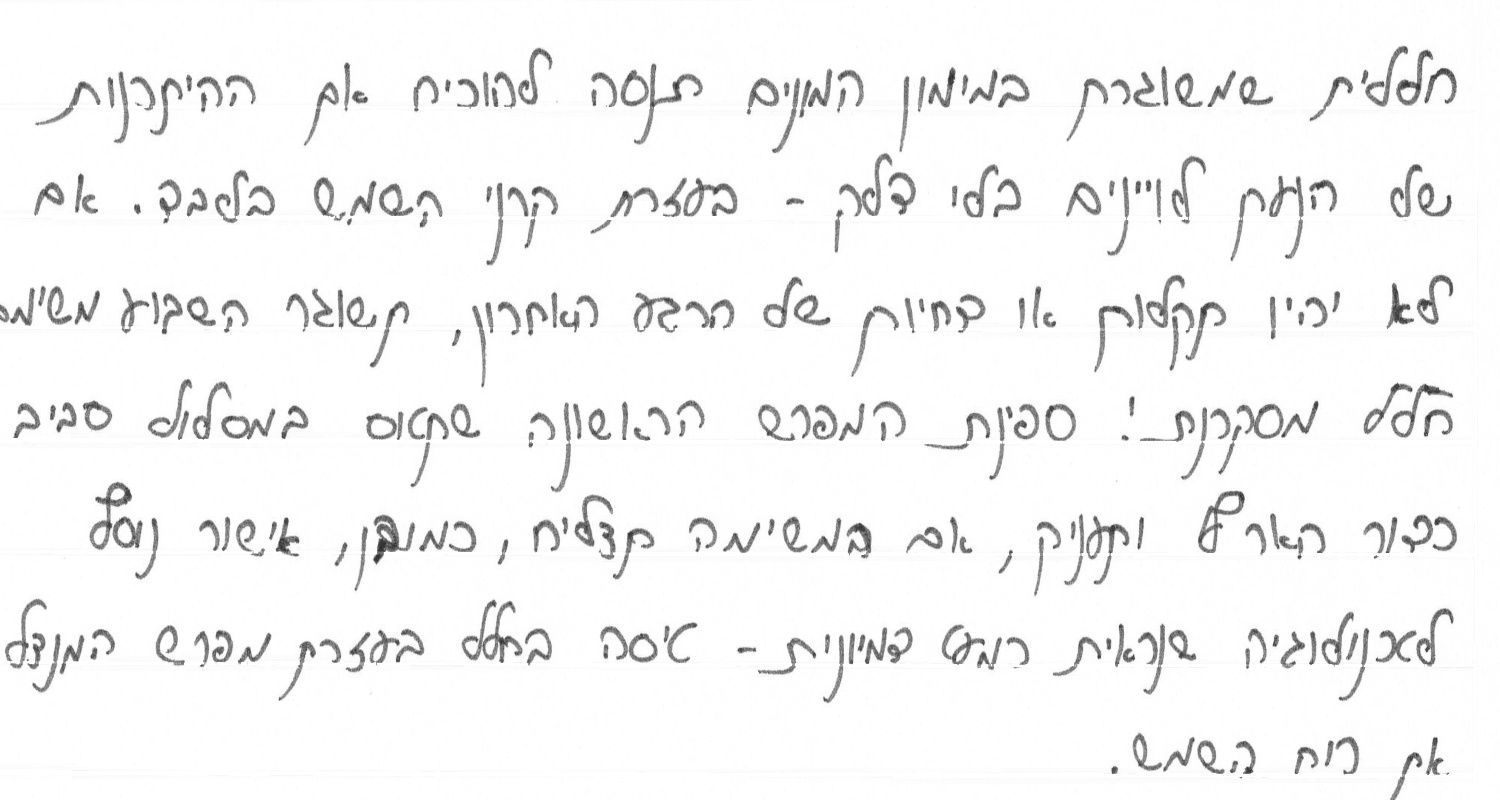 חללית שמשוגרת במימון המונים תנסה להוכיח את ההיתכנות
של הנעת לויינים בלי דלק - בעזרת קרני השמש בלבד. אם
לא יהיו תקלות או דחיות של הרגע האחרון, תשוגר השבוע משימת
חלל מסקרנת! ספינת המפרש הראשונה שתטוס במסלול סביב
כדור הארץ ותעניק, אם המשימה תצליח, כמובן, אישור נוסף
לטכנולוגיה שנראית כמעט דמיונית - טיסה בחלל בעזרת מפרש המנצל
את כוח השמש.